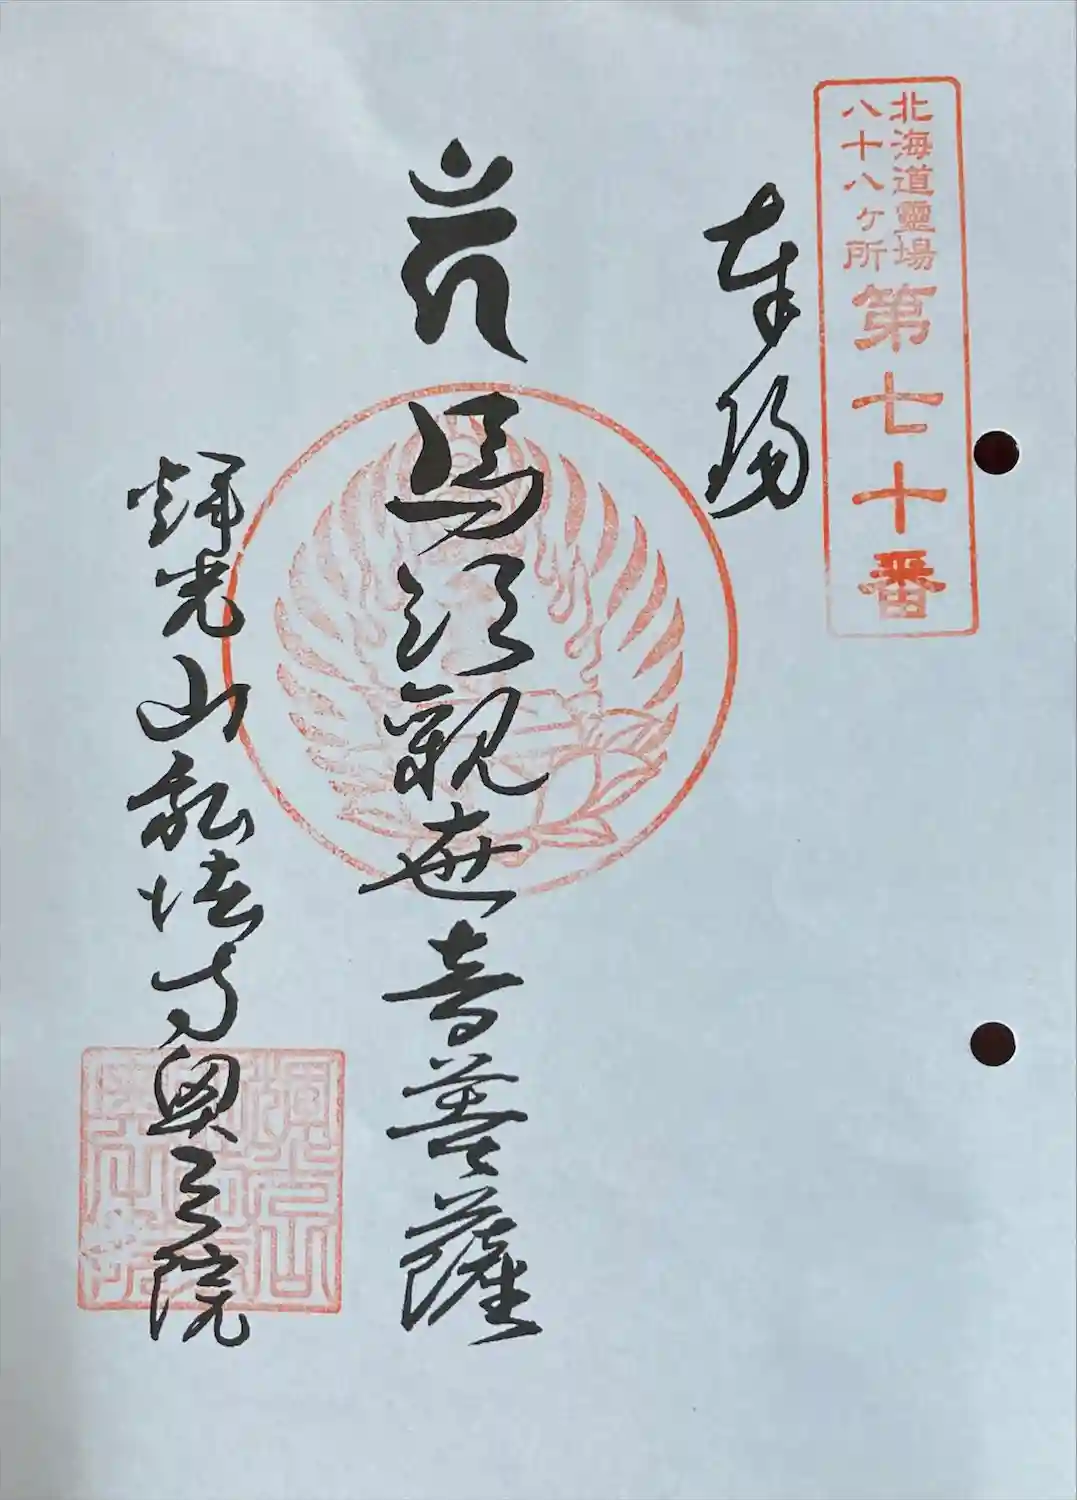 北海道靈場
八十八ヶ所
第七十番
奉拝
馬頭観世音菩薩
輝光山弘法寺奥之院